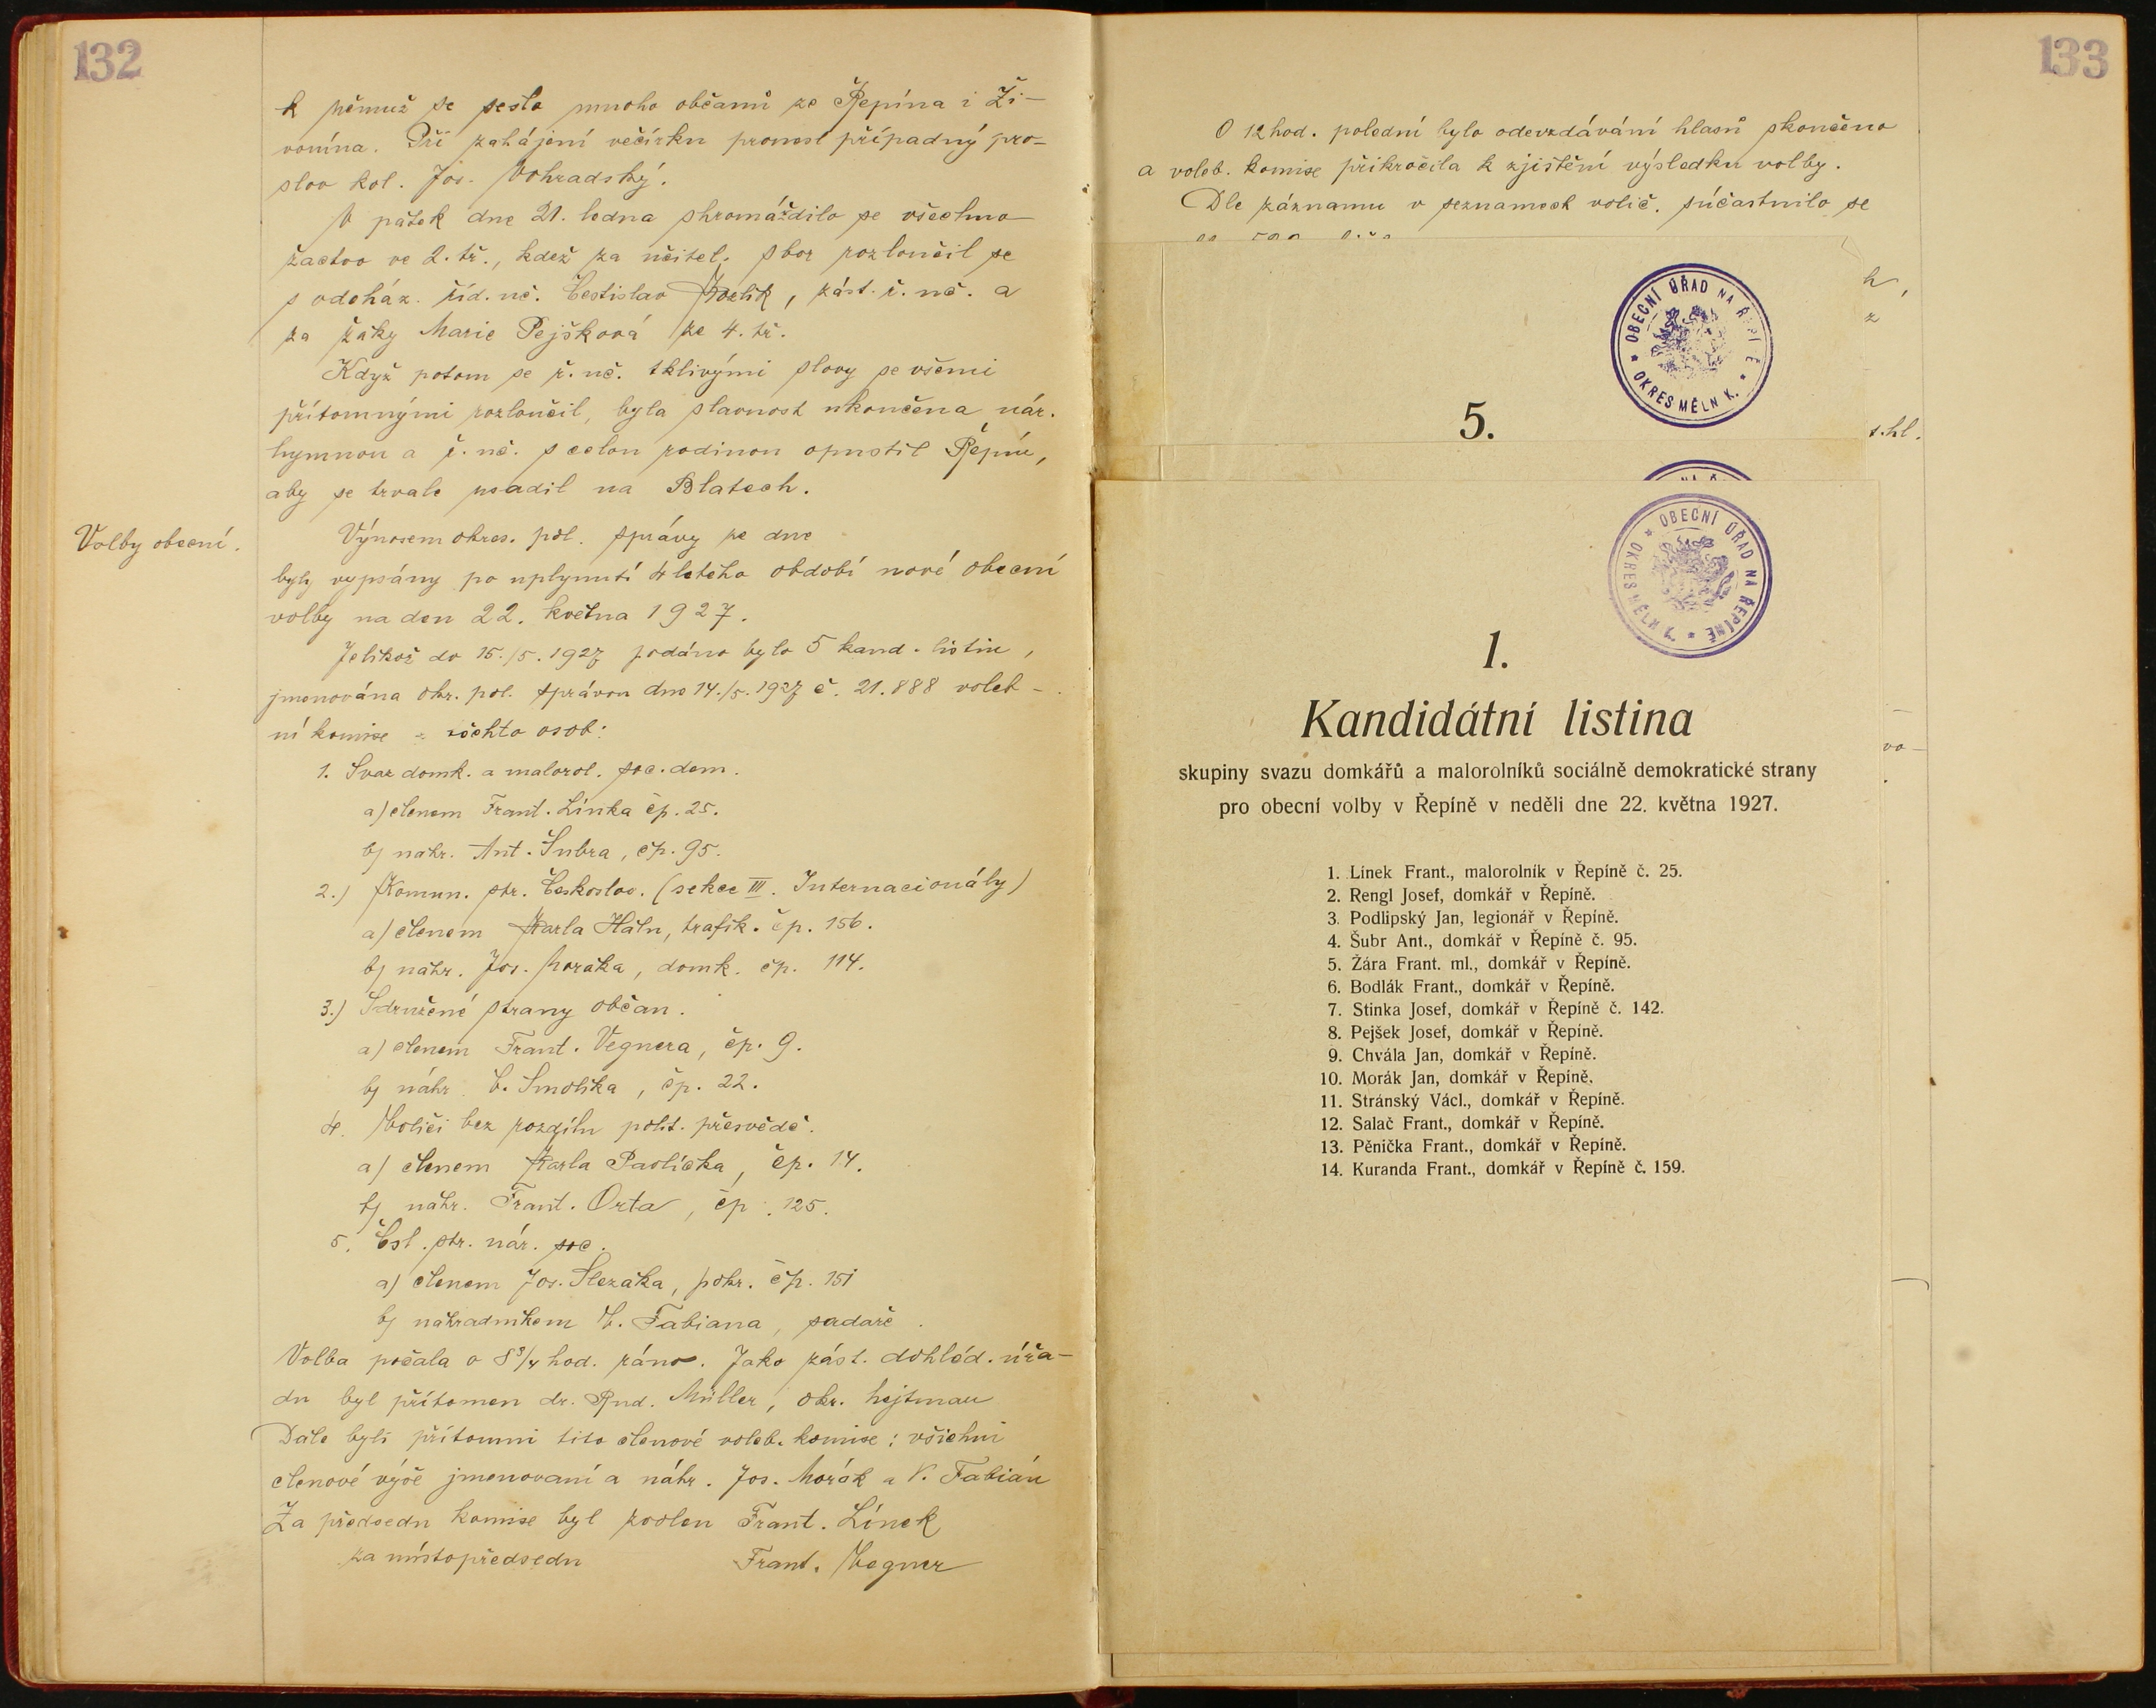 132
k němuž se sešlo mnoho občanů ze Řepína i Ži-
vonína. Při zahájení večírku pronesl případný pro-
slov kol. Jos. Vohradský.
V pátek dne 21. ledna shromáždilo se všechno
žactvo ve 2. tř., kdež za učitel. sbor rozloučil se
s odcház. říd. uč. Čestislav Kozlík, zást. ř. uč. a
za žáky Marie Pejšková ze 4. tř.
Když potom se ř. uč. tklivými slovy se všemi
přítomnými rozloučil, byla slavnost ukončena nár.
hymnou a ř. uč. s celou rodinou opustil Řepín,
aby se trvale usadil na Blatech.
Volby obecní.
Výnosem okres. pol. správy ze dne
byly vypsány po uplynutí 4 letého období nové obecní
volby na den 22. května 1927.
Jelikož do 15./5. 1927 podáno bylo 5 kand. listin,
jmenována okr. pol. správou dne 14./5. 1927 č. 21.888 voleb-
ní komise z těchto osob:
1. Svaz domk. a malorol. soc. dem.
a) členem Frant. Línka čp. 25.
b) náhr. Ant. Šubra, čp. 95.
2.) Komun. str. Českoslov. (sekce III. Internacionály)
a) členem Karla Hátu, trafik. čp. 156.
b) náhr. Jos. Moráka, domk. čp. 114.
3.) Sdružené strany občan.
a) členem Frant. Vegnera, čp. 9.
b) náhr. Č. Smolíka, čp. 22.
4. Voliči bez rozdílu polit. přesvědč.
a) členem Karla Pavlíčka, čp. 14.
b) náhr. Frant. Orta, čp. 125.
5. Čsl. str. nár. soc.
a) členem Jos. Slezáka, pokr. čp. 151
b) náhradníkem V. Fabiana, sadaře.
Volba počala o 8 3/4 hod. ráno. Jako zást. dohléd. úřa-
du byl přítomen dr. Rud. Müller, okr. hejtman
Dále byli přítomni tito členové voleb. komise: všichni
členové výše jmenovaní a náhr. Jos. Morák a V. Fabián
Za předsedu komise byl zvolen Frant. Línek
za místopředsedu Frant. Vegner
133
O 12 hod. polední bylo odevzdávání hlasů skončeno
a voleb. komise přikročila k zjištění výsledku volby.
Dle záznamu v seznamech volič. súčastnilo se
h,
z
OBECNÍ ÚŘAD NA ŘEPÍNĚ * OKRES MĚLNÍK. *
5.
t. hl.
OBECNÍ ÚŘAD NA ŘEPÍNĚ * OKRES MĚLNÍK *
1.
Kandidátní listina
vo-
skupiny svazu domkářů a malorolníků sociálně demokratické strany
pro obecní volby v Řepíně v neděli dne 22. května 1927.
1. Línek Frant., malorolník v Řepíně č. 25.
2. Rengl Josef, domkář v Řepíně.
3. Podlipský Jan, legionář v Řepíně.
4. Šubr Ant., domkář v Řepíně č. 95.
5. Žára Frant. ml., domkář v Řepíně.
6. Bodlák Frant., domkář v Řepíně.
7. Stinka Josef, domkář v Řepíně č. 142.
8. Pejšek Josef, domkář v Řepíně.
9. Chvála Jan, domkář v Řepíně.
10. Morák Jan, domkář v Řepíně.
11. Stránský Václ., domkář v Řepíně.
12. Salač Frant., domkář v Řepíně.
13. Pěnička Frant., domkář v Řepíně.
14. Kuranda Frant., domkář v Řepíně č. 159.